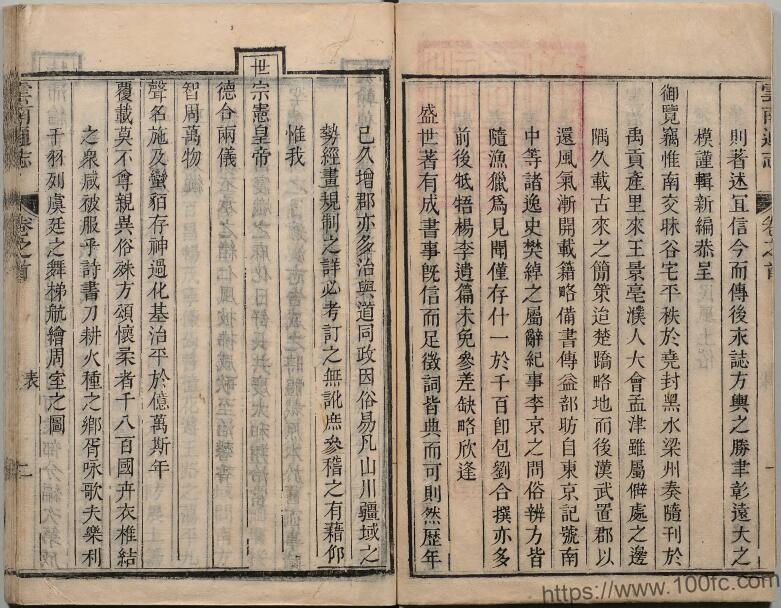 則著述宜信今而傳後永誌方輿之勝聿彰遠大之
模謹輯新編恭呈
御覽竊惟南交昧谷宅平秩於堯封黑水梁州奏隨刊於
禹貢產里來王景亳濮人大會孟津雖屬僻處之邊
隅久載古來之簡策迨楚蹻略地而後漢武置郡以
還風氣漸開載籍略備書傳益部昉自東京記號南
中等諸逸史樊綽之屬辭紀事李京之問俗辨方皆
隨漁獵爲見聞僅存什一於千百卽包劉合撰亦多
前後牴牾楊李遺篇未免參差缺略欣逢
盛世著有成書事旣信而足徵詞皆典而可則然歷年
雲南通志
卷之首
表
二
已久增郡亦多治與道同政因俗易凡山川疆域之
勢經畫規制之詳必考訂之無訛庶參稽之有藉仰
惟我
世宗憲皇帝
德合兩儀
智周萬物
聲名施及蠻貊存神過化基治平於億萬斯年
覆載莫不尊親異俗殊方頌懷柔者千八百國卉衣椎結
之衆咸被服乎詩書刀耕火種之鄉胥咏歌夫樂利
干羽列虞廷之舞梯航繪周室之圖
https://www.100fc.com